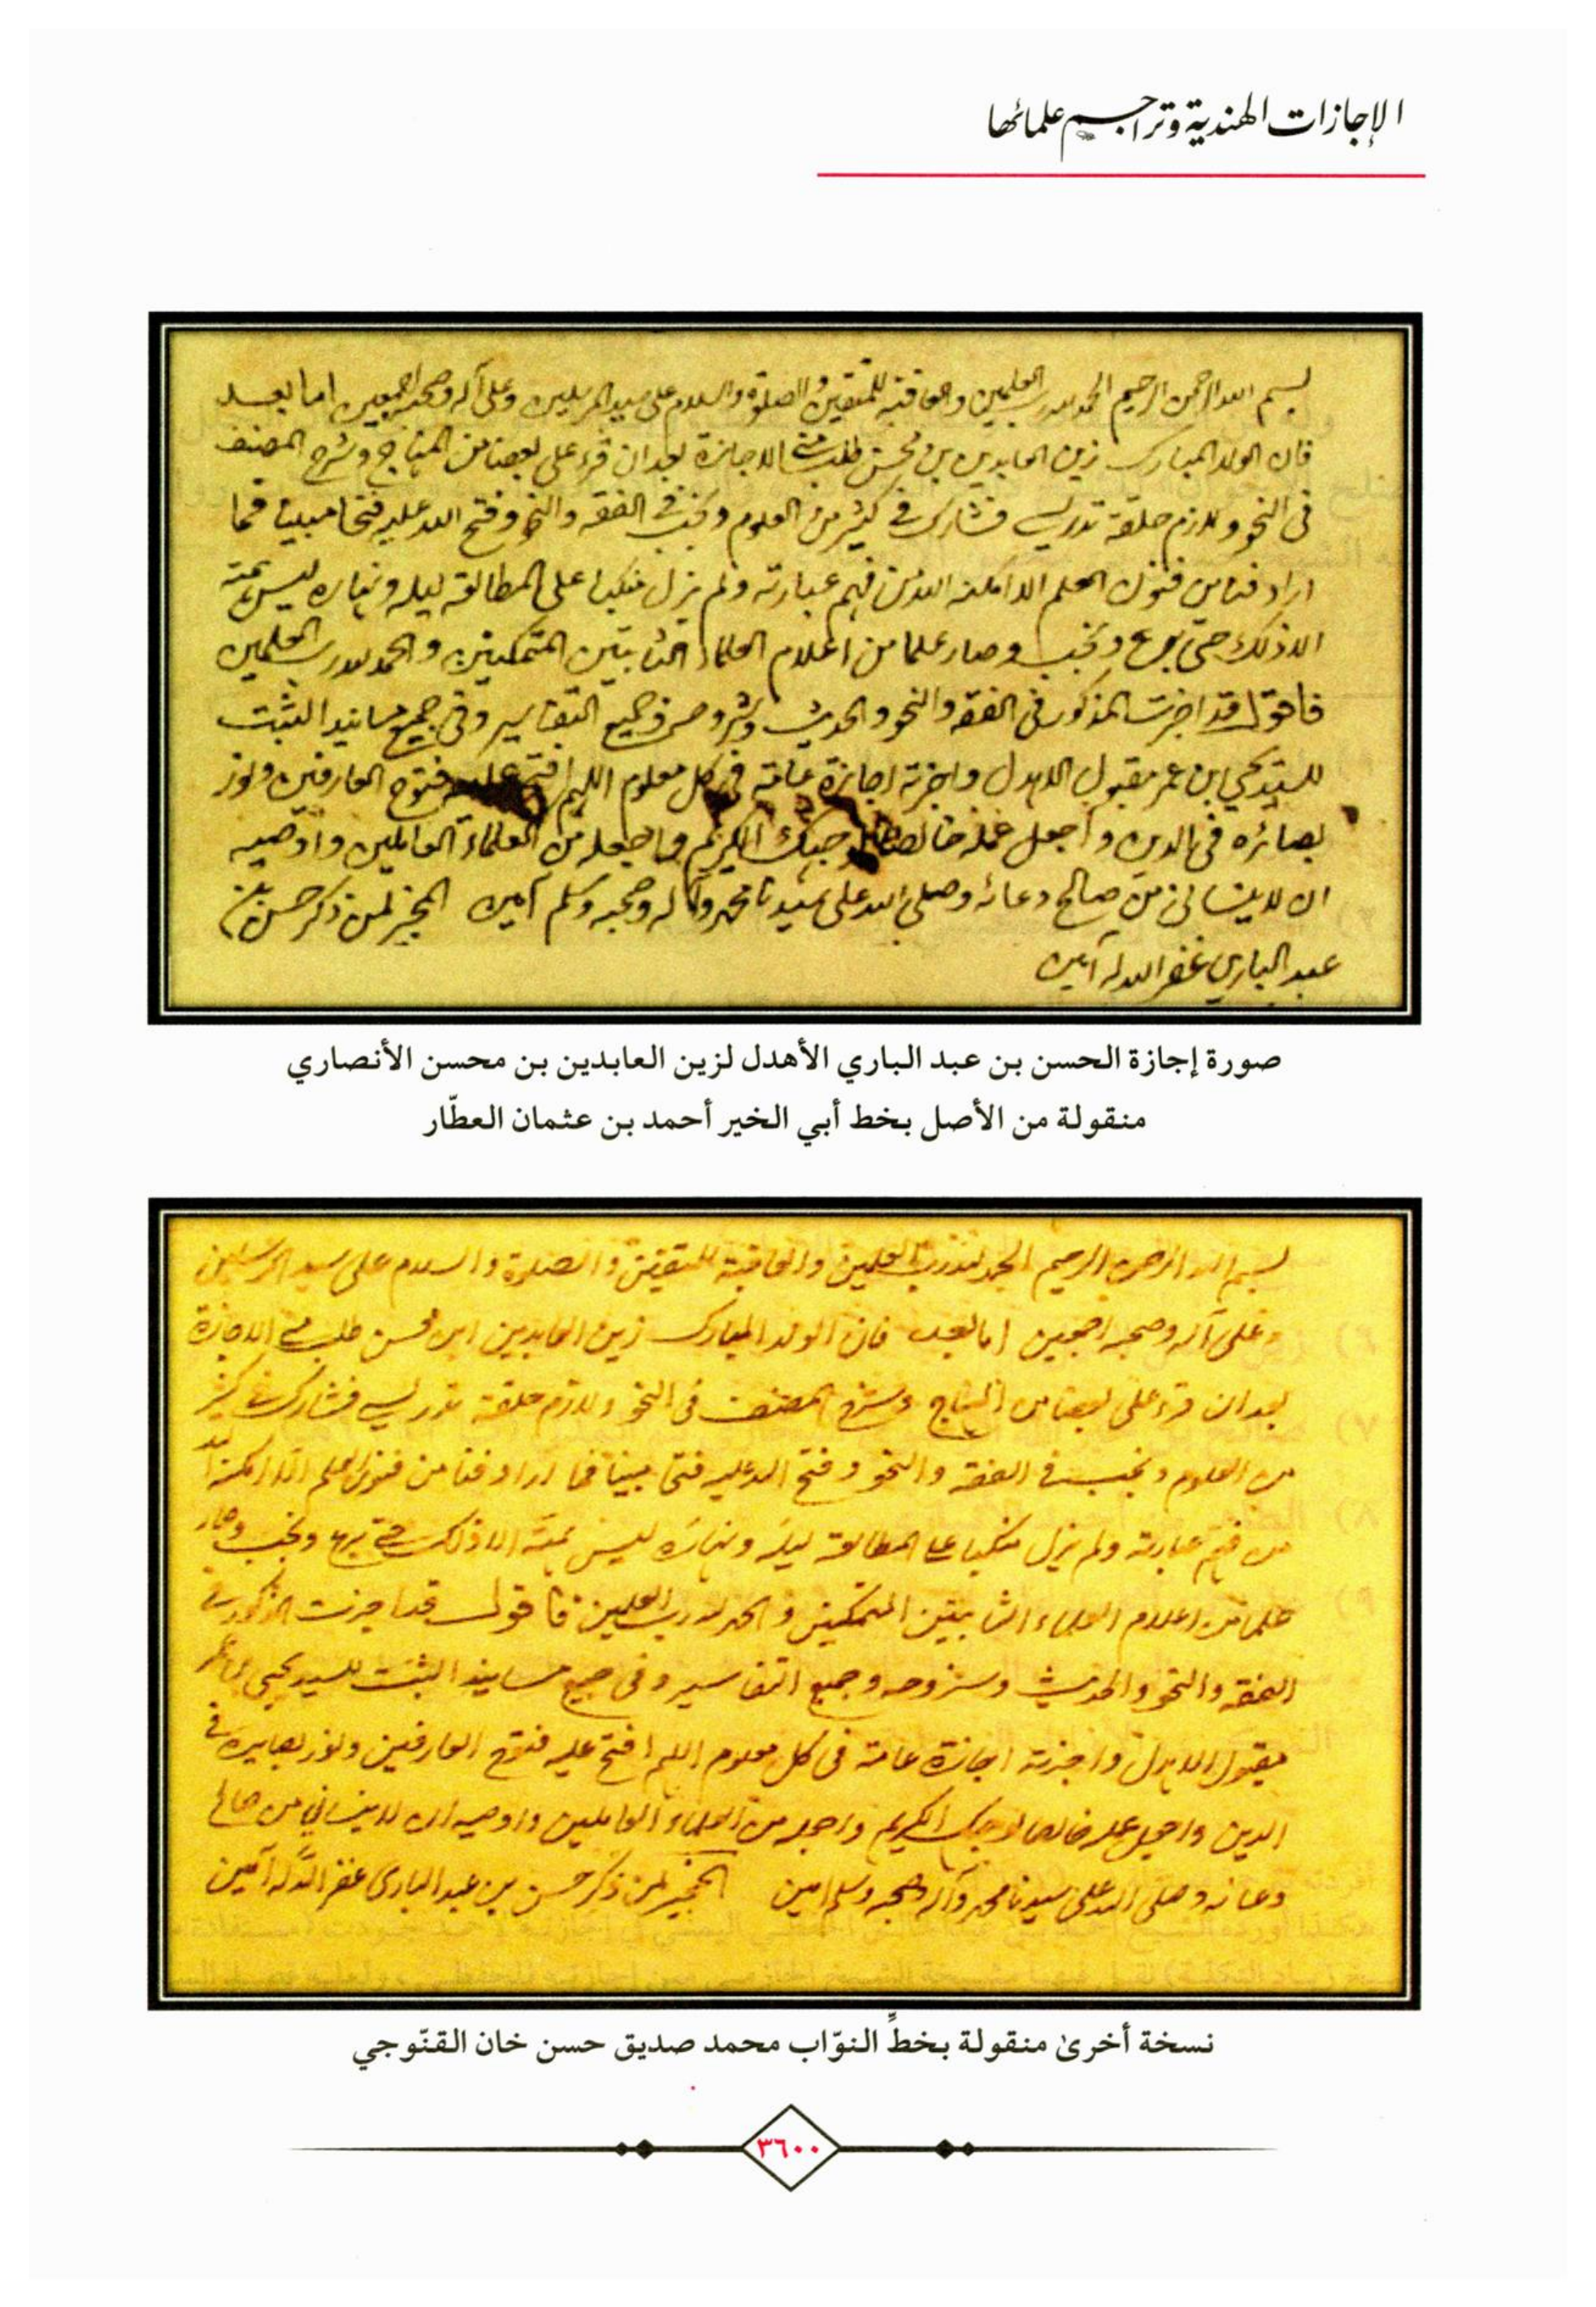 الإجازات الهندية وتراجم علمائها
بسم الله الرحمن الرحيم الحمد لله رب العلمين والعاقبة للمتقين والصلوة والسلام على سيد المرسلين وعلى آله وصحبه اجمعين اما بعد
فان الولد المبارك زين العابدين بن محسن طلب مني الاجازة بعد ان قرء على بعضا من المنهاج وشرح المصنف
في النحو ولازم حلقة تدريسي فشارك في كثير من العلوم ونجب في الفقه والنحو وفتح الله عليه فتحا مبينا فما
اراد فنا من فنون العلم الا امكنه الله من فهم عبارته ولم يزل منكبا على المطالعة ليله ونهاره ليس همته
الا ذلك حتى برع ونجب وصار علما من اعلام العلماء الثابتين المتمكنين والحمد لله رب العلمين
فاقول قد اجزت المذكور في الفقه والنحو والحديث وشروحه وجميع التفاسير وفي جميع مسانيد الثبت
للسيد يحيى ابن عمر مقبول الاهدل واجزته اجازة عامة في كل معلوم اللهم افتح عليه فتوح العارفين ونور
بصائره في الدين واجعل عمله خالصا لوجهك الكريم واجعله من العلماء العاملين واوصيه
ان لا ينساني من صالح دعائه وصلى الله على سيدنا محمد وآله وصحبه وسلم آمين المجيز لمن ذكر حسن بن
عبد الباري غفر الله له آمين
صورة إجازة الحسن بن عبد الباري الأهدل لزين العابدين بن محسن الأنصاري
منقولة من الأصل بخط أبي الخير أحمد بن عثمان العطّار
بسم الله الرحمن الرحيم الحمد لله رب العلمين والعاقبة للمتقين والصلوة والسلام على سيد المرسلين
وعلى آله وصحبه اجمعين اما بعد فان الولد المبارك زين العابدين ابن محسن طلب مني الاجازة
بعد ان قرء على بعضا من المنهاج وشرح المصنف في النحو ولازم حلقة تدريسي فشارك في كثير
من العلوم ونجب في الفقه والنحو وفتح الله عليه فتحا مبينا فما اراد فنا من فنون العلم الا امكنه الله
من فهم عبارته ولم يزل منكبا على المطالعة ليله ونهاره ليس همته الا ذلك حتى برع ونجب وصار
علما من اعلام العلماء الثابتين المتمكنين والحمد لله رب العلمين فاقول قد اجزت المذكور في
الفقه والنحو والحديث وشروحه وجميع التفاسير وفي جميع مسانيد الثبت للسيد يحيى بن عمر
مقبول الاهدل واجزته اجازة عامة في كل معلوم اللهم افتح عليه فتوح العارفين ونور بصايره في
الدين واجعل عمله خالصا لوجهك الكريم واجعله من العلماء العاملين واوصيه ان لا ينساني من صالح
دعائه وصلى الله على سيدنا محمد وآله وصحبه وسلم امين المجيز لمن ذكر حسن بن عبد الباري غفر الله له آمين
نسخة أخرىٰ منقولة بخطِّ النوّاب محمد صديق حسن خان القنّوجي
٣٦٠٠